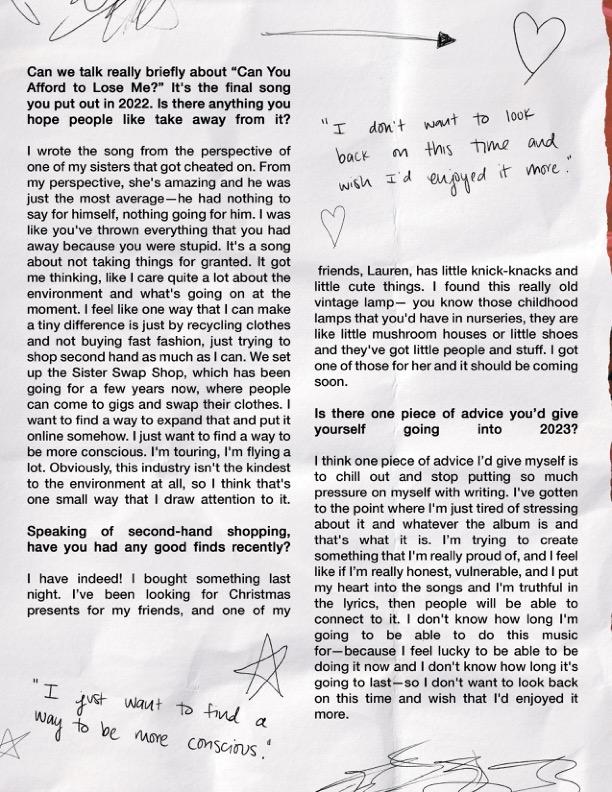 Can we talk really briefly about “Can You
Afford to Lose Me?” It's the final song
you put out in 2022. Is there anything you
hope people like take away from it?
I wrote the song from the perspective of
one of my sisters that got cheated on. From
my perspective, she's amazing and he was
just the most average—he had nothing to
say for himself, nothing going for him. I was
like you've thrown everything that you had
away because you were stupid. It's a song
about not taking things for granted. It got
me thinking, like I care quite a lot about the
environment and what's going on at the
moment. I feel like one way that I can make
a tiny difference is just by recycling clothes
and not buying fast fashion, just trying to
shop second hand as much as I can. We set
up the Sister Swap Shop, which has been
going for a few years now, where people
can come to gigs and swap their clothes. I
want to find a way to expand that and put it
online somehow. I just want to find a way to
be more conscious. I'm touring, I'm flying a
lot. Obviously, this industry isn't the kindest
to the environment at all, so I think that's
one small way that I draw attention to it.
Speaking of second-hand shopping,
have you had any good finds recently?
I have indeed! I bought something last
night. I've been looking for Christmas
presents for my friends, and one of my
"I just want to find a
way to be more conscious."
"I don't want to look
back on this time and
wish I'd enjoyed it more."
friends, Lauren, has little knick-knacks and
little cute things. I found this really old
vintage lamp— you know those childhood
lamps that you'd have in nurseries, they are
like little mushroom houses or little shoes
and they've got little people and stuff. I got
one of those for her and it should be coming
soon.
Is there one piece of advice you’d give
yourself going into 2023?
I think one piece of advice I’d give myself is
to chill out and stop putting so much
pressure on myself with writing. I've gotten
to the point where I'm just tired of stressing
about it and whatever the album is and
that's what it is. I’m trying to create
something that I'm really proud of, and I feel
like if I’m really honest, vulnerable, and I put
my heart into the songs and I'm truthful in
the lyrics, then people will be able to
connect to it. I don't know how long I'm
going to be able to do this music
for—because I feel lucky to be able to be
doing it now and I don't know how long it's
going to last—so I don't want to look back
on this time and wish that I'd enjoyed it
more.